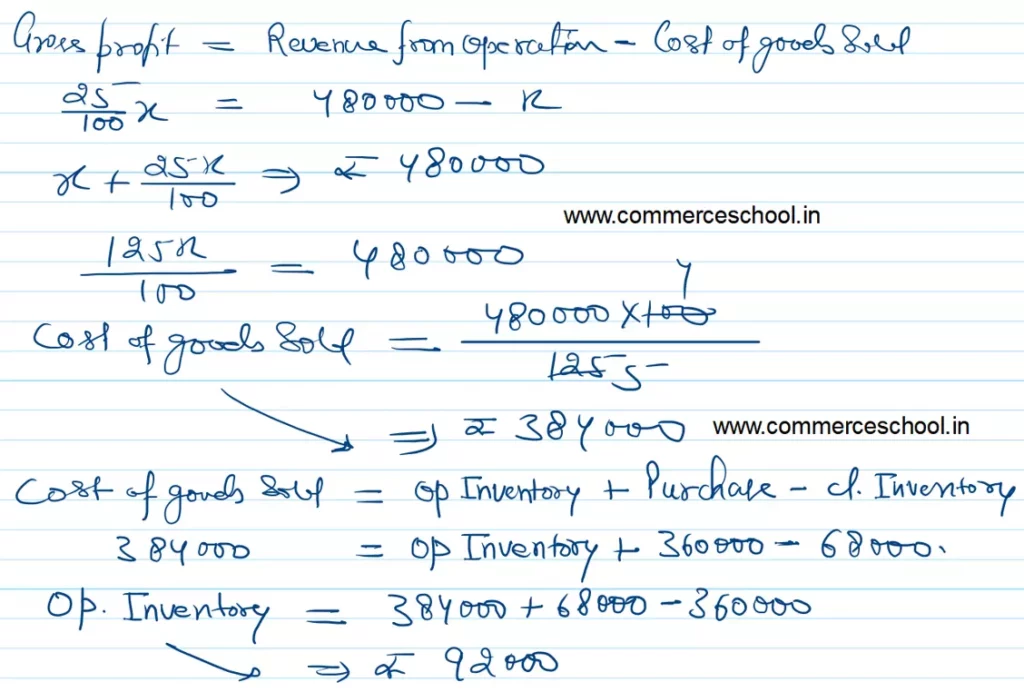 Gross profit = Revenue from operation - Cost of goods Sold
25/100 x = 480000 - x
x + 25x/100 ⇒ ₹ 480000
www.commerceschool.in
125x/100 = 480000
Cost of goods Sold = 480000 × 100 4 / 125 5
⇒ ₹ 384000 www.commerceschool.in
Cost of goods Sold = Op Inventory + Purchase - cl. Inventory
384000 = Op Inventory + 360000 - 68000.
Op. Inventory = 384000 + 68000 - 360000
⇒ ₹ 92000